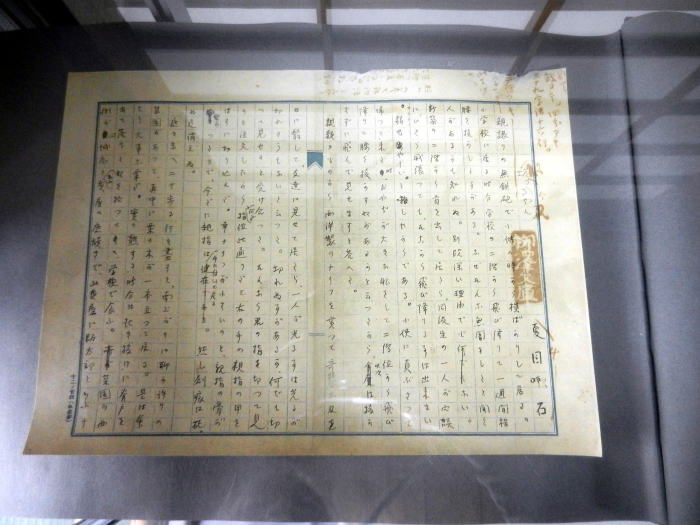 坊っちゃん
夏目漱石
親譲りの無鉄砲で小供の時から損ばかりして居る。
小学校に居る時分学校の二階から飛び降りて一週間程
腰を抜かした事がある。なぜそんな無闇をしたと聞く
人があるかも知れぬ。別段深い理由でも何でもない。
新築の二階から首を出して居たら、同級生の一人が冗談
にいくら威張つても、そこから飛び降りる事は出来まい
。弱虫やーい。と囃したからである。小使に負ぶさつて
帰つて来た時、おやぢが大きな眼をして二階位から飛び
降りて腰を抜かす奴があるかと云つたから、此次は抜か
さずに飛んで見せますと答へた。
親類のものから西洋製のナイフを貰つて奇麗な刃を
日に翳して、友達に見せて居たら、一人が光る事は光るが
切れさうもないと云つた。切れぬ事があるか、何でも切
つて見せると受け合つた。そんなら君の指を切つて見
ろと注文したから、何だ指位此通りだと右の手の親指の甲を
はすに切り込んだ。幸ナイフが小さいのと、親指の骨が
堅かつたので、今だに親指は手に付いて居る。然し創痕は死
ぬ迄消えぬ。
庭を東へ二十歩に行き尽すと、南上がりに聊か許りの
菜園があつて、真中に栗の木が一本立つて居る。是は命
より大事な栗だ。実の熟する時分は起き抜けに脊戸を
出て落ちた奴を拾つてきて、学校で食ふ。菜園の西
側が山城屋と云ふ質屋の庭続きで、此質屋に勘太郎といふ十